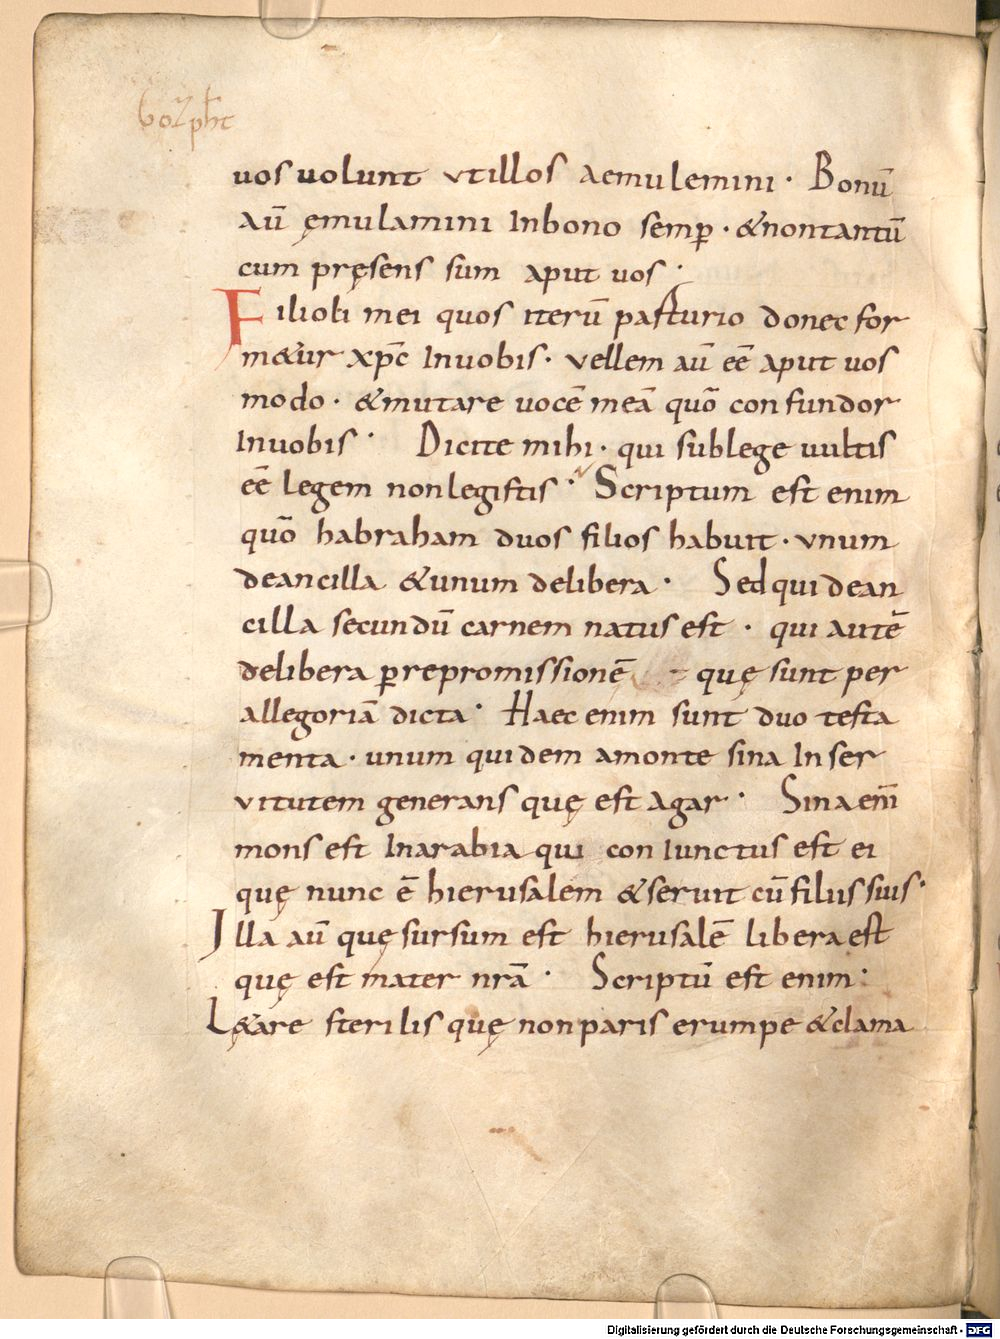 uos uolunt vtillos aemulemini · Bonū
aū ęmulamini Inbono semꝑ · &nontantū
cum pręsens sum aput uos ·
Filioli mei quos iterū pasturio donec for
m&ur xp̄c Inuobis · vellem aū eē aput uos
modo · &mutare uocē meā quō confundor
Inuobis · Dicite mihi · qui sublege uultis
eē legem nonlegistis · Scriptum est enim
quō habraham duos filios habuit · vnum
deancilla &unum delibera · Sed qui dean
cilla secundū carnem natus est · qui autē
delibera ꝑrepromissionē · quę sunt per
allegoriā dicta · Haec enim sunt duo testa
menta · unum quidem amonte sina Inser
vitutem generans quę est Agar · Sina enī
mons est Inarabia qui conIunctus est ei
quę nunc ē hierusalem &seruit cū filiis suis ·
Illa aū quę sursum est hierusalē libera est
quę est mater nrā · Scriptū est enim ·
Lę&are sterilis quę nonparis erumpe &clama
Digitalisierung gefördert durch die Deutsche Forschungsgemeinschaft - DFG